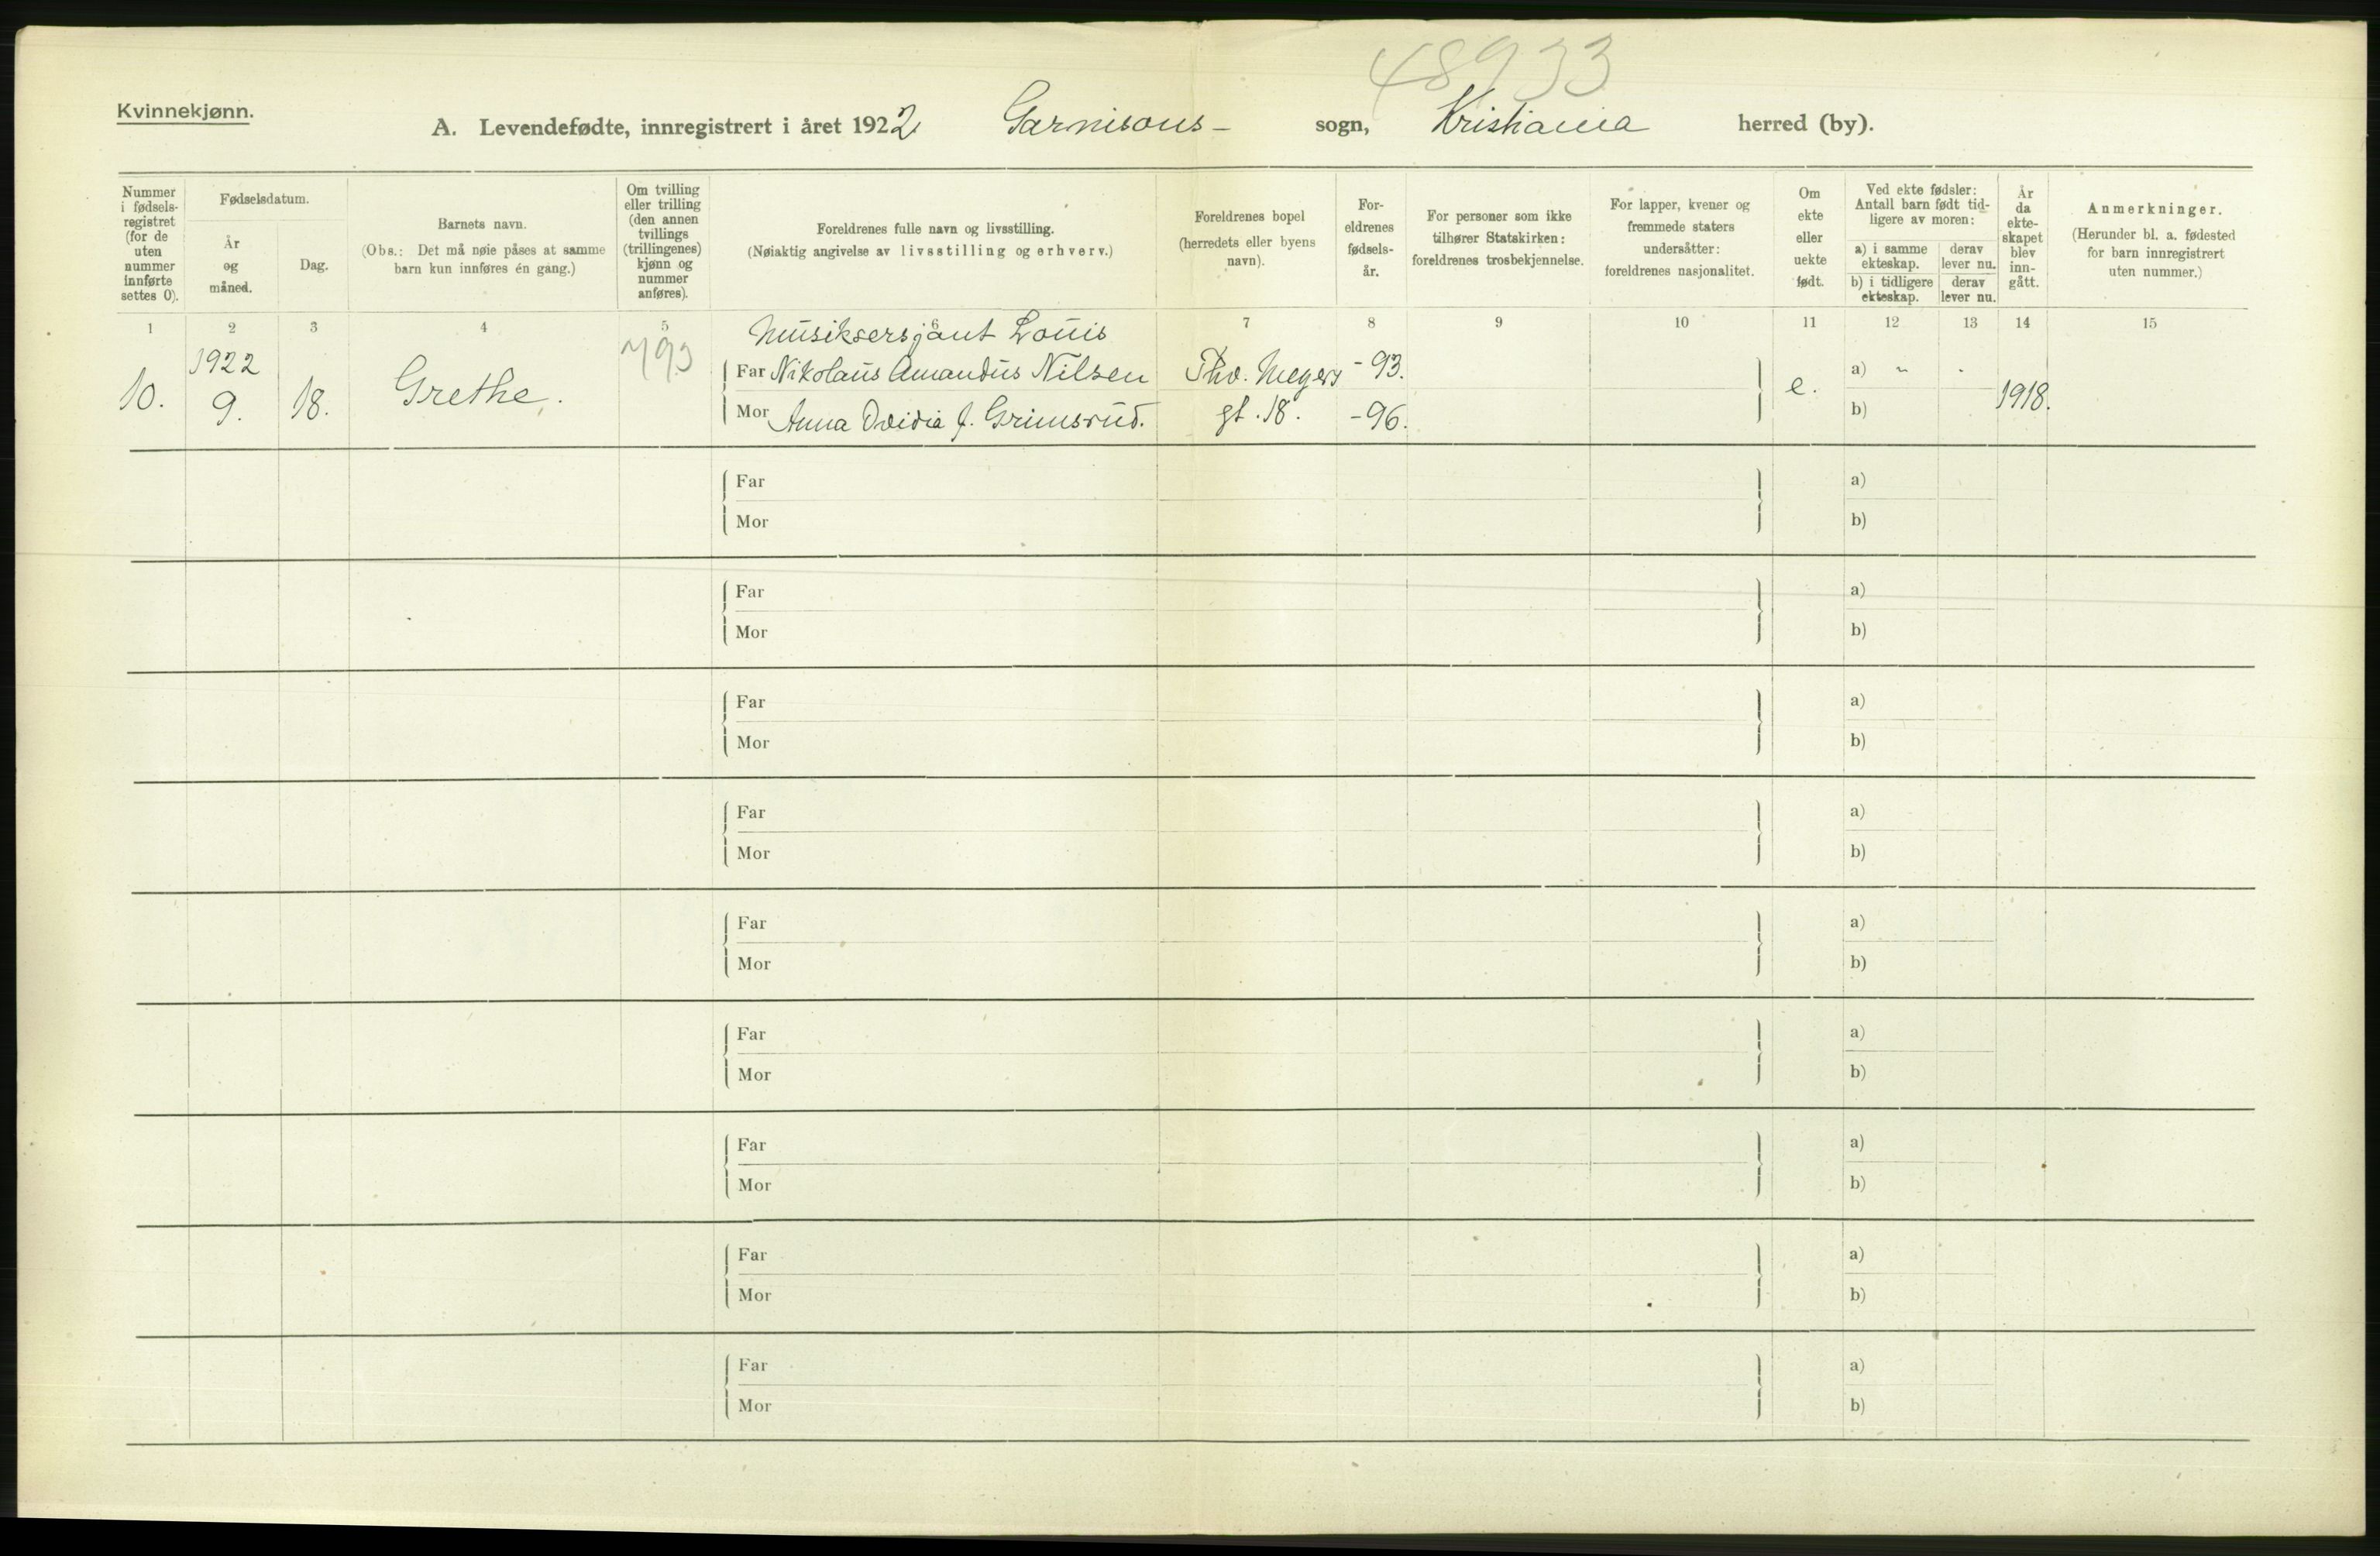 48933
Kvinnekjønn.
A. Levendefødte, innregistrert i året 1922 Garnisons- sogn, Kristiania herred (by).
Nummer i fødsels-registret (for de uten nummer innførte settes 0).
Fødselsdatum.
År og måned.
Dag.
Barnets navn.
(Obs.: Det må nøie påses at samme barn kun innføres én gang.)
Om tvilling eller trilling (den annen tvillings (trillingenes) kjønn og nummer anføres).
Foreldrenes fulle navn og livsstilling.
(Nøiaktig angivelse av livsstilling og erhverv.)
Foreldrenes bopel
(herredets eller byens navn).
For-eldrenes fødsels-år.
For personer som ikke tilhører Statskirken: foreldrenes trosbekjennelse.
For lapper, kvener og fremmede staters undersåtter: foreldrenes nasjonalitet.
Om ekte eller uekte født.
Ved ekte fødsler: Antall barn født tid-ligere av moren:
a) i samme ekteskap.
derav lever nu.
b) i tidligere ekteskap.
derav lever nu.
År da ekte-skapet blev inn-gått.
Anmerkninger.
(Herunder bl. a. fødested for barn innregistrert uten nummer.)
1 2 3 4 5 6 7 8 9 10 11 12 13 14 15
Musiksersjant Louis
1922
Far Nikolaus Amandus Nilsen Thv. Meyers -93. a) " .
10. 9. 18. Grethe. e. 1918.
Mor Anna Ovidia f. Grimsrud. gt. 18. -96. b)
Far a)
Mor b)
Far a)
Mor b)
Far a)
Mor b)
Far a)
Mor b)
Far a)
Mor b)
Far a)
Mor b)
Far a)
Mor b)
Far a)
Mor b)
Far a)
Mor b)